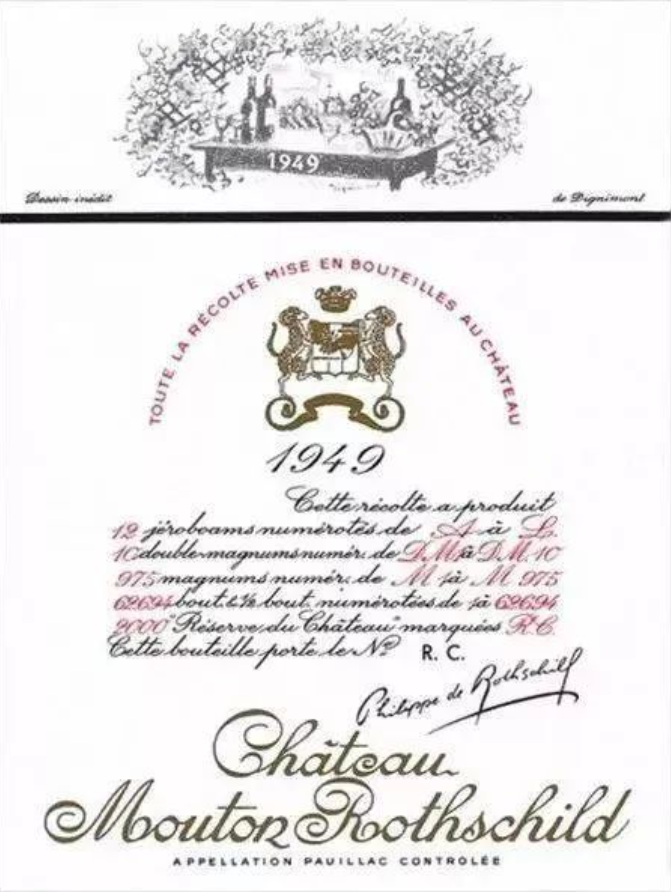 1949
Dessin inédit
de Dignimont
TOUTE LA RÉCOLTE MISE EN BOUTEILLES AU CHÂTEAU
1949
Cette récolte a produit
12 jéroboams numérotés de A à L
10 double-magnums numér. de D.M.1 à D.M.10
975 magnums numér. de M 1 à M 975
62694 bout. & ½ bout. numérotées de 1 à 62694
2000 "Réserve du Château" marquées R.C.
Cette bouteille porte le Nº R. C.
Philippe de Rothschild
Château
Mouton Rothschild
APPELLATION PAUILLAC CONTROLÉE